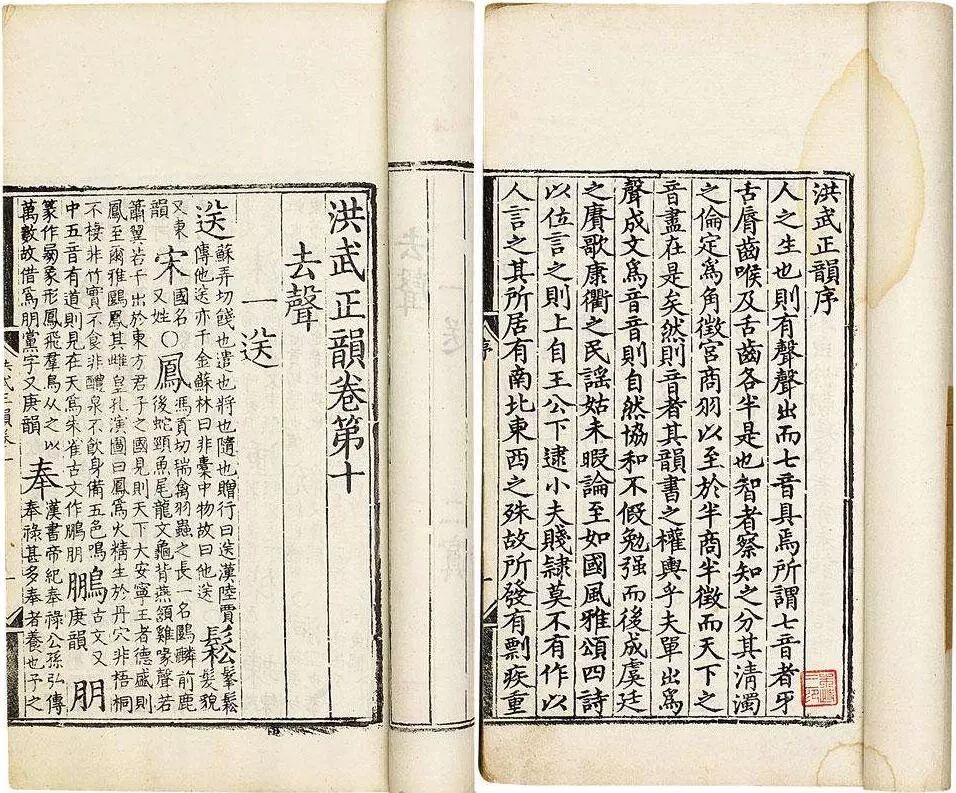 洪武正韻序
人之生也則有聲聲出而七音具焉所謂七音者牙
舌脣齒喉及舌齒各半是也智者察知之分其清濁
之倫定爲角徵宮商羽以至於半商半徵而天下之
音盡在是矣然則音者其韻書之權輿乎夫單出爲
聲成文爲音音則自然協和不假勉强而後成虞廷
之賡歌康衢之民謡姑未暇論至如國風雅頌四詩
以位言之則上自王公下逮小夫賤隷莫不有作以
人言之其所居有南北東西之殊故所發有剽疾重
序
洪武正韻卷第十
去聲
一送
送蘇弄切餞也遣也將也隨也贈行曰送漢陸賈傳他送亦千金蘇林曰非橐中物故曰他送鬆髼鬆髮貌
又東韻宋國名又姓〇鳳馮貢切瑞禽羽蟲之長一名鶠麟前鹿後蛇頸魚尾龍文龜背燕頷雞喙聲若
簫翼若干出於東方君子之國見則天下大安寧王者德盛則鳳至爾雅鶠鳳其雌皇孔演圖曰鳳爲火精生於丹穴非梧桐
不棲非竹實不食非醴泉不飲身備五色鳴中五音有道則見在天爲朱雀古文作鵬朋鵬古文又庚韻朋
篆作象形鳳飛羣鳥從之以萬數故借爲朋黨字又庚韻奉漢書帝紀奉祿公孫弘傳奉祿甚多奉者養也子之